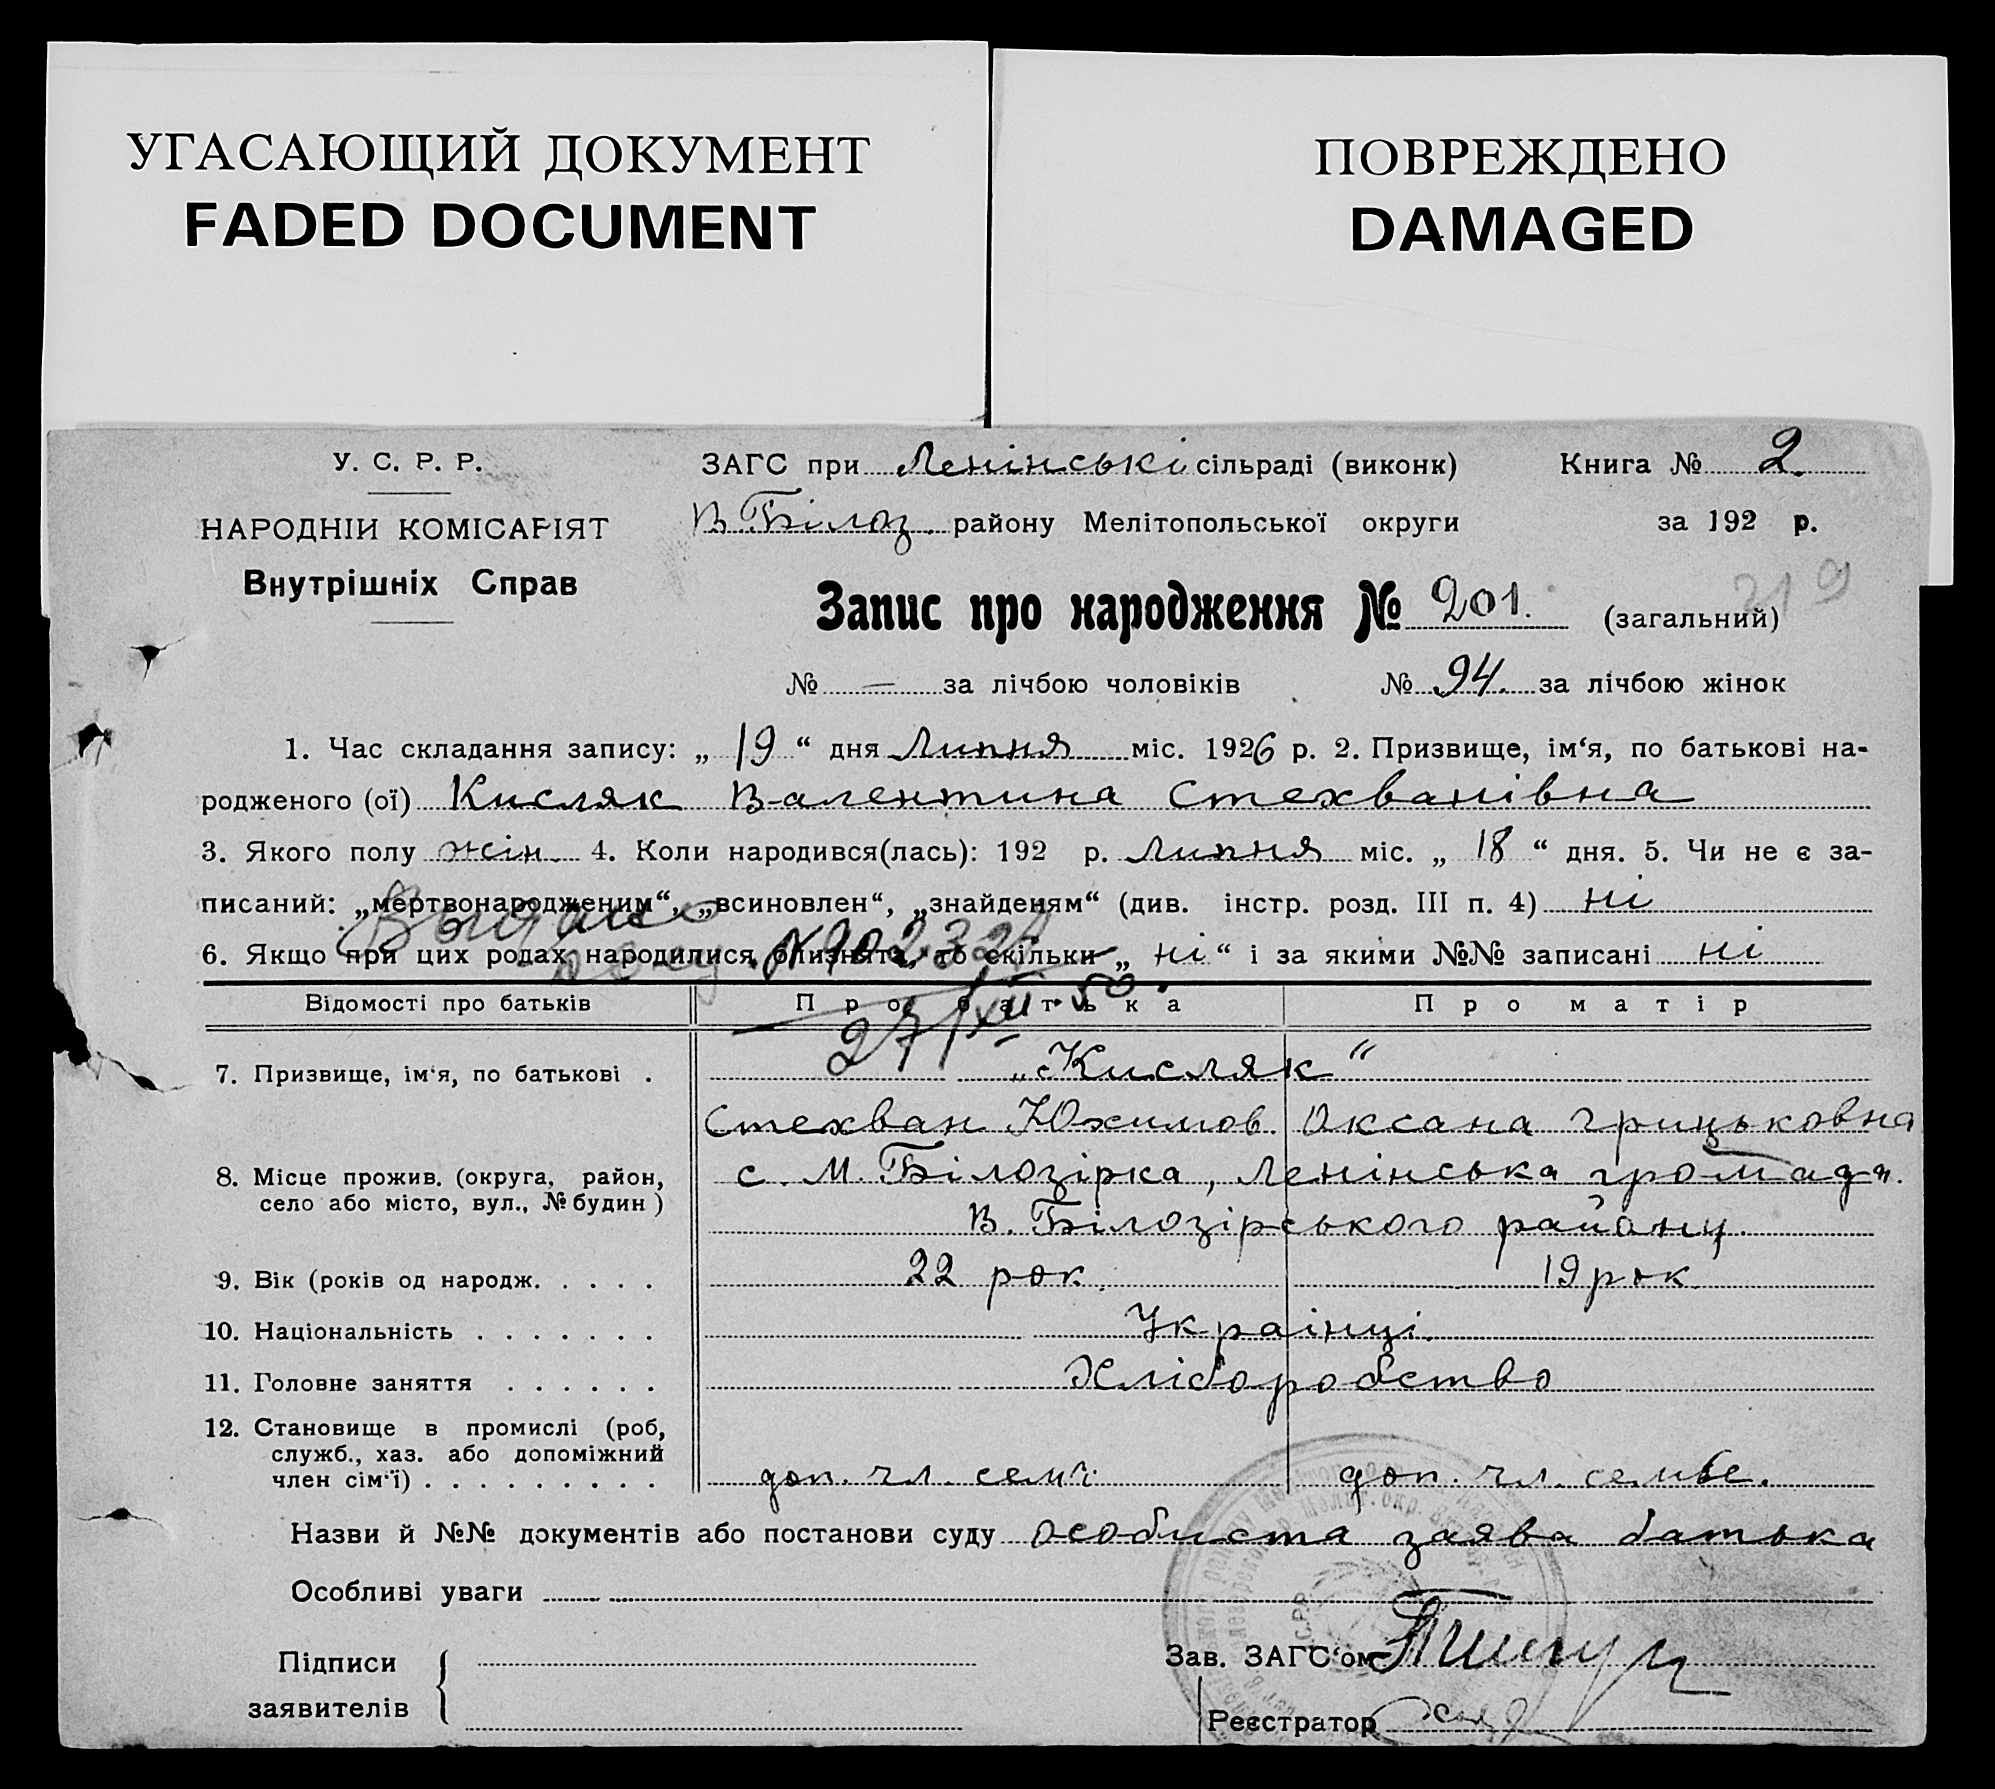 УГАСАЮЩИЙ ДОКУМЕНТ
FADED DOCUMENT
ПОВРЕЖДЕНО
DAMAGED
У. С. Р. Р.
НАРОДНІЙ КОМІСАРІЯТ
Внутрішніх Справ
ЗАГС при Ленінські сільраді (виконк) Книга № 2.
В Білоз. району Мелітопольської округи за 192 р.
219
Запис про народження № 201. (загальний)
№ — за лічбою чоловіків № 94. за лічбою жінок
1. Час складання запису: „ 19 “ дня Липня міс. 1926 р. 2. Призвище, ім‘я, по батькові на-
родженого (ої) Кисляк Валентина Стехванівна
3. Якого полу жін. 4. Коли народився(лась): 192 р. Липня міс. „ 18 “ дня. 5. Чи не є за-
писаний: „мертвонародженим“, „всиновлен“, „знайденям“ (див. інстр. розд. III п. 4) ні
Выдано
6. Якщо при цих родах народилися близнята, то скільки „ ні “ і за якими №№ записані ні
27/XII 50.
Відомості про батьків Про батька Про матір
7. Призвище, ім‘я, по батькові . „Кисляк“
Стехван Юхимов. Оксана Грицьковна
8. Місце прожив. (округа, район, с. М. Білозірка, Ленінська громада.
село або місто, вул., № будин ) В. Білозірського району.
9. Вік (років од народж. . . . . 22 рок. 19 рок
10. Національність . . . . . . . Українці.
11. Головне заняття . . . . . . Хліборобство
12. Становище в промислі (роб,
служб., хаз. або допоміжний
член сім‘ї) . . . . . . . . . доп. чл. семї. доп. чл. семье.
Назви й №№ документів або постанови суду особиста заява батька
Особливі уваги
Підписи Зав. ЗАГС‘ом
заявителів Реєстратор